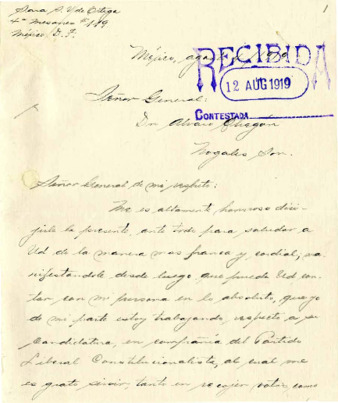 Sara P. V. de Ortega
4ª mesones # 189
México, D. F.
1
México, agosto 1919
RECIBIDA
12 AUG 1919
CONTESTADA
Señor General.
Dn. Alvaro Obregón
Nogales Son.
Señor General de mi respeto:
Me es altamente honroso diri-
jirle la presente, ante todo para saludar a
Ud de la manera mas franca y cordial, ma-
nifestandole desde luego que puede Ud con-
tar con mi persona en lo absoluto, que yo
de mi parte estoy trabajando, respecto a su
Candidatura, en compañia del Partido
Liberal Constitucionalista, al cual me
es grato servir, tanto en recojer votos, como